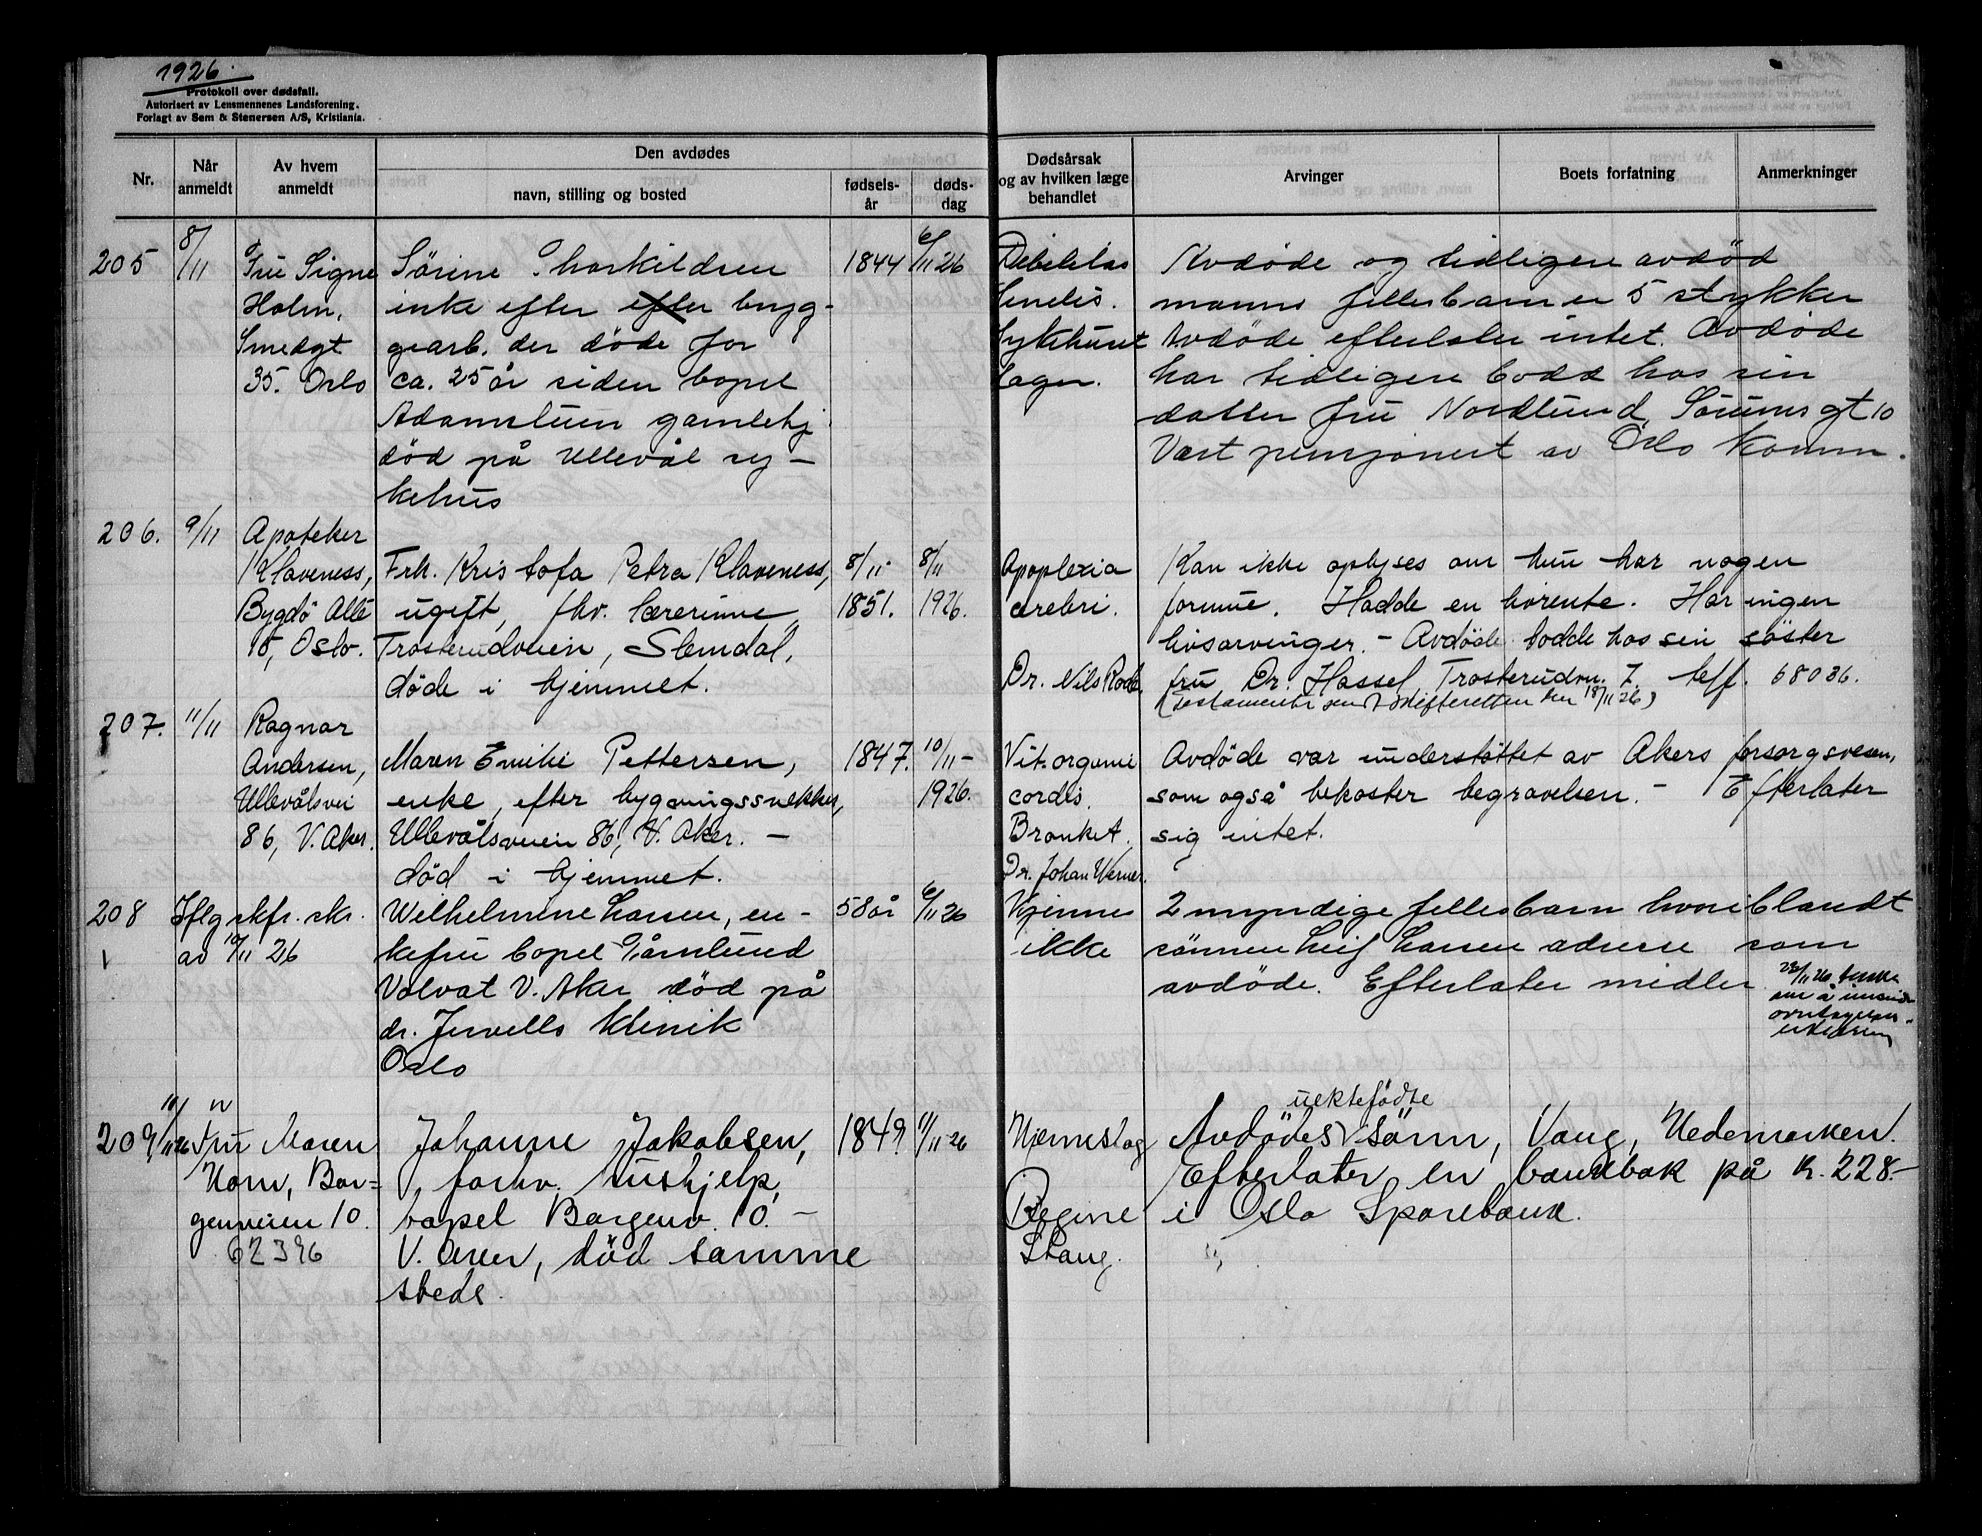 1926.
Protokoll over dødsfall.
Autorisert av Lensmennenes Landsforening.
Forlagt av Sem & Stenersen A/S, Kristiania.
Nr.
Når anmeldt
Av hvem anmeldt
Den avdødes
navn, stilling og bosted
fødsels-år
døds-dag
Dødsårsak og av hvilken læge behandlet
Arvinger
Boets forfatning
Anmerkninger
205
8/11
Fru Signe
Holm,
Smedgt
35. Oslo
Sørine Thorkildsen
enke efter efter brygg-
gearb. der døde for
ca. 25 år siden bopel
Adamstuen gamlehj
død på Ullevål sy-
kehus
1844
6/11 26
Debilitas
Senilis.
Sykehuset
Avdøde og tidligere avdød
manns fellesbarn er 5 stykker
Avdøde efterlater intet. Avdøde
har tidligere bodd hos sin
datter fru Nordlund Sørumsgt 10
Vært pensjonert av Oslo Komm.
206.
9/11
Apoteker
Klaveness,
Bygdö Allé
15, Oslo.
Frk. Kristofa Petra Klaveness,
ugift, fhv. lærerinne,
Trosterudveien, Slemdal,
døde i hjemmet.
8/11-
1851.
8/11
1926.
Apoplexia
cerebri.
Dr. Nils Rode
Kan ikke oplyses om hun har nogen
formue. Hadde en livrente. Har ingen
livsarvinger. - Avdöde bodde hos sin söster
fru Dr. Hassel, Trosterudvn. 7. telf. 68036.
(Testamente sendt skifteretten den 18/11 26)
207.
11/11
Ragnar
Andersen,
Ullevålsvei
86, V. Aker.
Maren Emilie Pettersen,
enke efter bygningssnekker,
Ullevålsveien 86, V. Aker. -
død i hjemmet.
1847.
10/11-
1926.
Vit. organi
cordis.
Bronkit.
Dr. Johan Werner.
Avdøde var understøttet av Akers forsorgsvesen,
som også bekoster begravelsen. - Efterlater
sig intet.
208
Iflg skfr. skr.
av 10/11 26
Wilhelmine Larsen, en-
kefru bopel
Volvat V. Aker død på
dr. Jervells Klinik
Oslo
58 år
6/11 26
Kjennes
ikke
2 myndige fellesbarn hvoriblandt
sønnen Leif Larsen adresse som
avdøde. Efterlater midler
om å innsende
overtagelses-
erklæring
209
11/11 26
Fru Maren
Horn, Bor-
genveien 10.
62396
Johanne Jakobsen,
forhv. hushjelp,
bopel Borgenv. 10. -
V. Aker, død samme
steds.
1849
11/11-26
Hjerneslag
Regine
Stang.
uektefödte
Avdödes sönn, Vang, Hedemarken.
Efterlater en bankbok på kr. 228.-
i Oslo Sparebank.